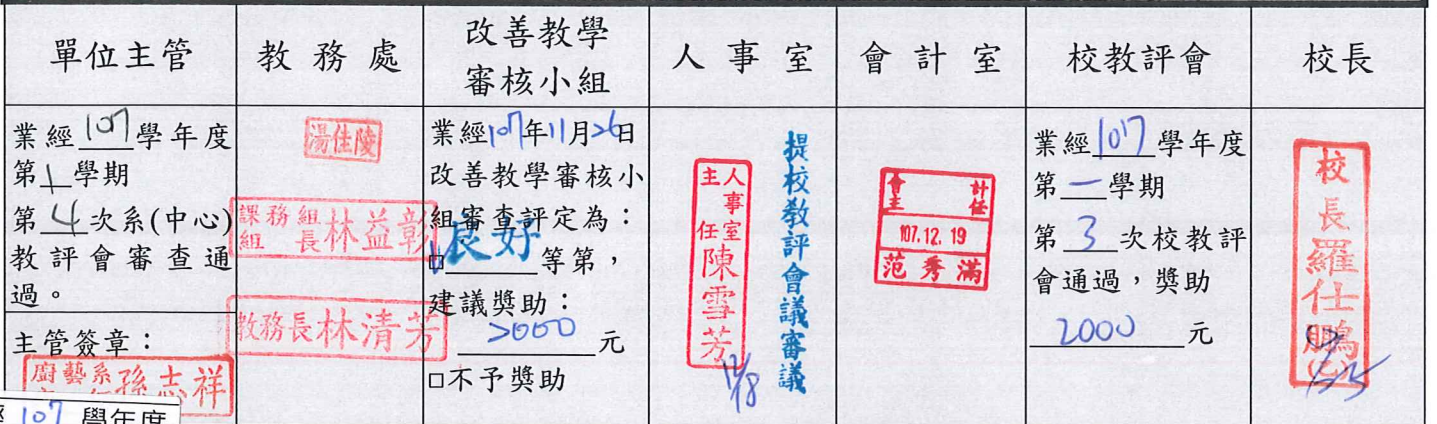 單位主管
教務處
改善教學
審核小組
人事室
會計室
校教評會
校長
業經107學年度
第1學期
第4次系(中心)
教評會審查通
過。
主管簽章：
廚藝系
孫志祥
107 學年度
湯佳陵
課務組
組長林益彰
教務長林清芳
業經107年11月26日
改善教學審核小
組審查評定為：
□良好等第，
建議獎助：
2000元
□不予獎助
人事室
主任陳雪芳
提校教評會議審議
會計
主任
107.12.19
范秀滿
業經107學年度
第一學期
第3次校教評
會通過，獎助
2000元
校長羅仕鵬